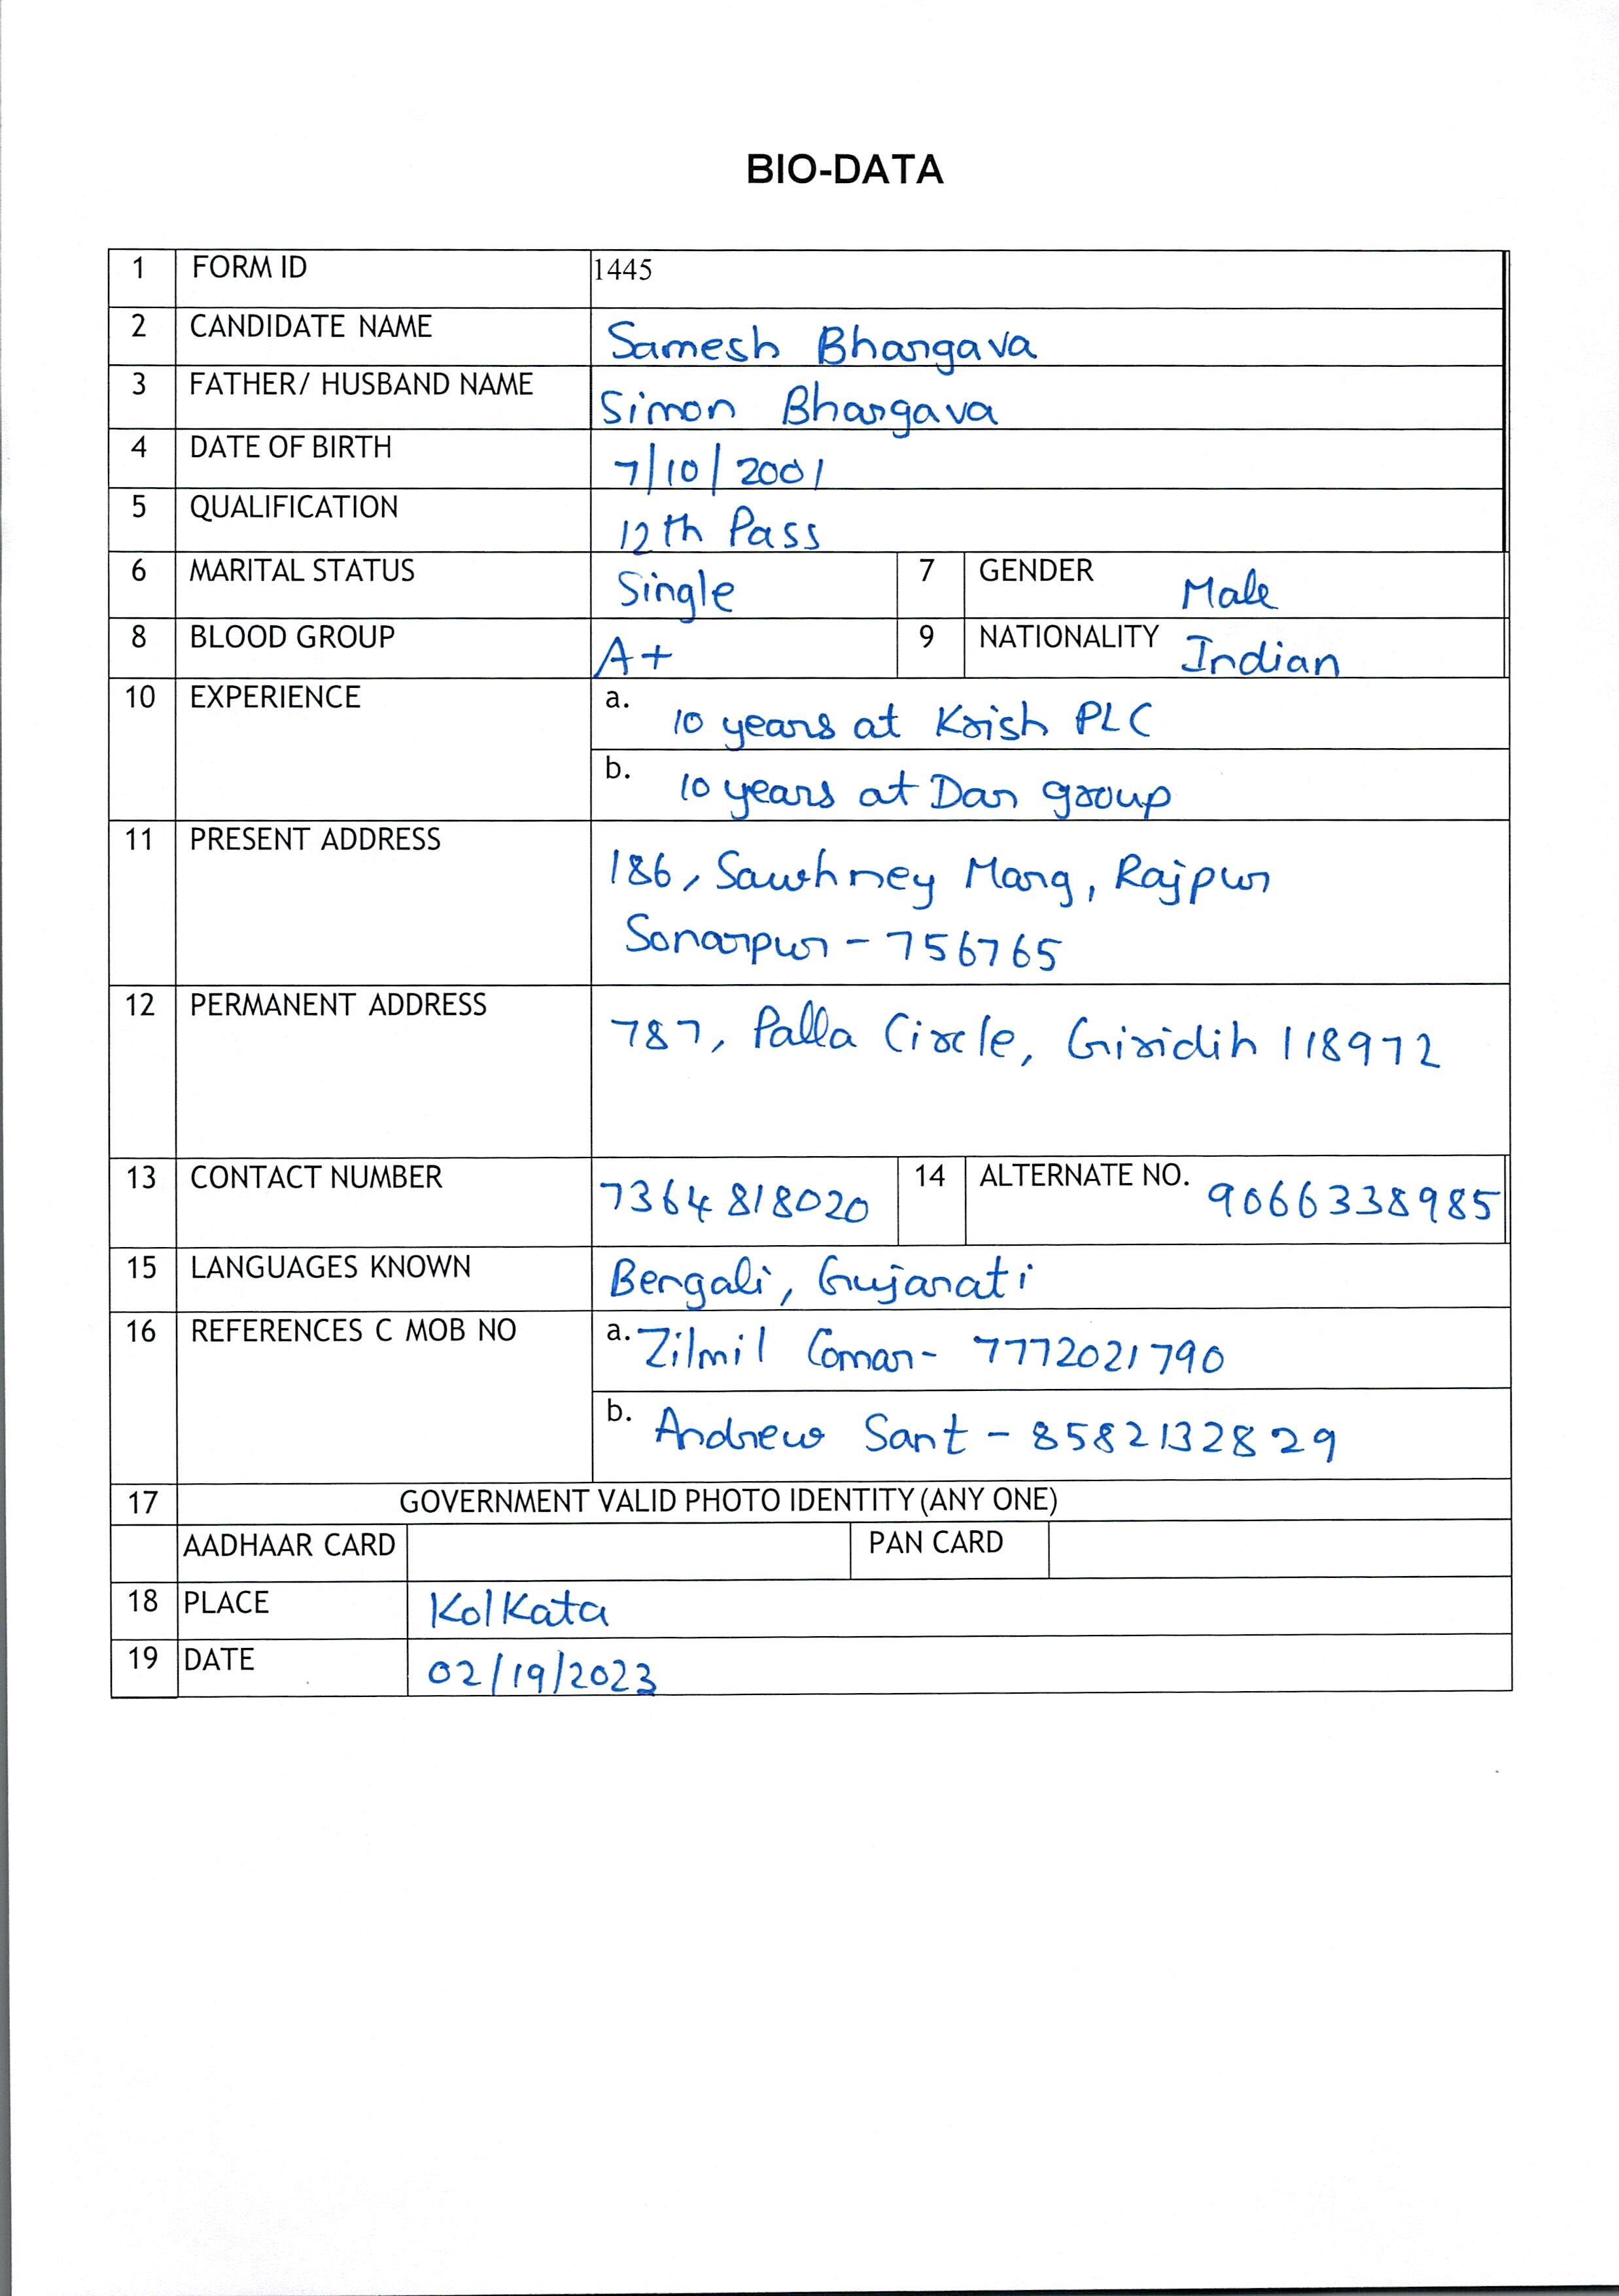 BIO-DATA
1 FORM ID 1445
2 CANDIDATE NAME Samesh Bhargava
3 FATHER/ HUSBAND NAME Simon Bhargava
4 DATE OF BIRTH 7/10/2001
5 QUALIFICATION 12th Pass
6 MARITAL STATUS Single 7 GENDER Male
8 BLOOD GROUP A+ 9 NATIONALITY Indian
10 EXPERIENCE a. 10 years at Krish PLC
b. 10 years at Dar group
11 PRESENT ADDRESS 186, Sawhney Marg, Rajpur
Sonarpur - 756765
12 PERMANENT ADDRESS 787, Palla Circle, Giridih 118972
13 CONTACT NUMBER 7364818020 14 ALTERNATE NO. 9066338985
15 LANGUAGES KNOWN Bengali, Gujarati
16 REFERENCES C MOB NO a. Zilmil Comar- 7772021790
b. Andrew Sant - 8582132829
17 GOVERNMENT VALID PHOTO IDENTITY (ANY ONE)
AADHAAR CARD PAN CARD
18 PLACE Kolkata
19 DATE 02/19/2023